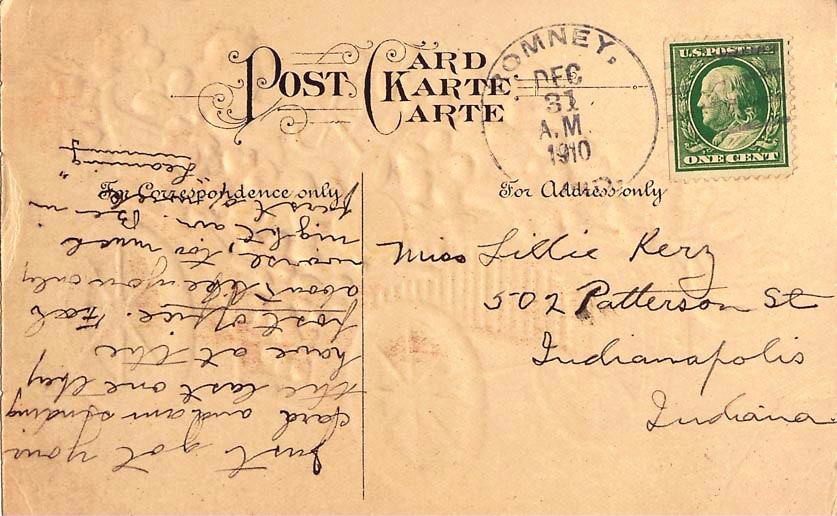 POST CARD
KARTE
CARTE
ROMNEY,
DEC
31
A.M.
1910
IND.
U.S. POSTAGE
ONE CENT
For Correspondence only
For Address only
Miss Lillie Kerz
502 Patterson St
Indianapolis
Indiana.
Just got your
card and am sending
the last one they
have at the
post office. Feel
about like you only
worse, for much
night air. Been in
first
"Leaming"